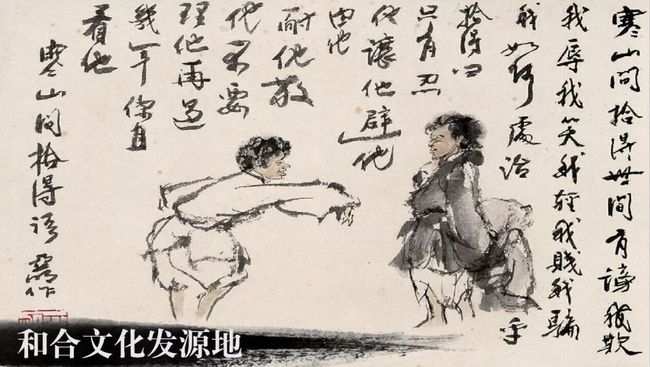 寒山問拾得世間有謗我欺
我辱我笑我輕我賤我騙
我如何處治乎
拾得曰
只有忍
他讓他避他
由他
耐他敬
他不要
理他再過
幾年你且
看他
寒山問拾得語
和合文化发源地